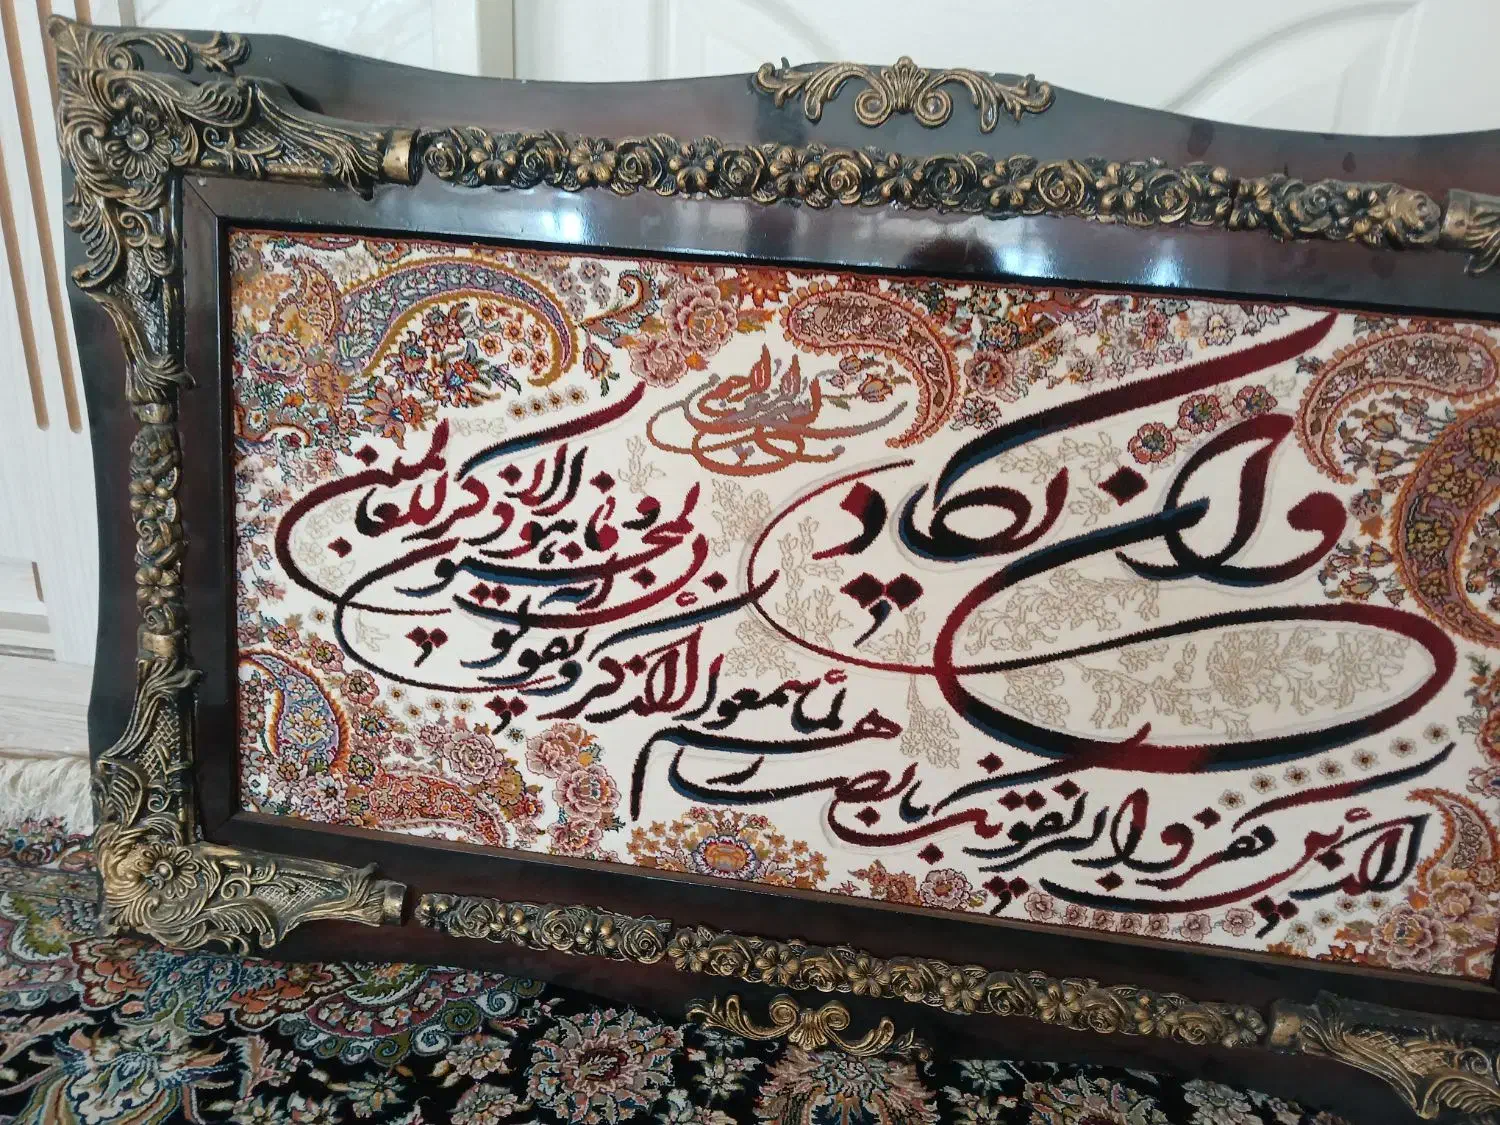 وان یکاد
الذین کفروا لیزلقونک بابصارهم
لما سمعوا الذکر و یقولون انه
لمجنون و ما هو الا ذکر للعالمین